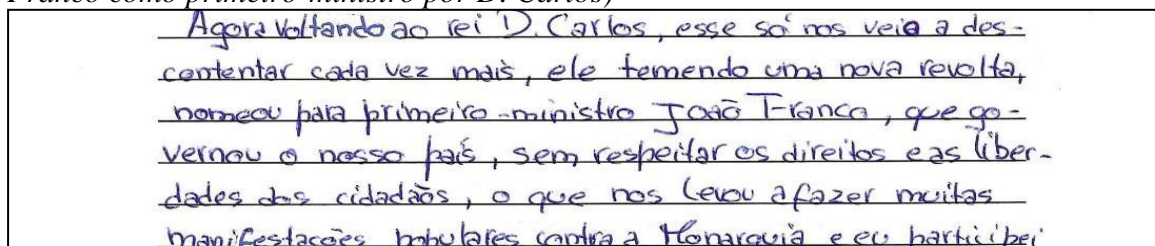 Franco como primeiro ministro por D. Carlos)
Agora voltando ao rei D. Carlos, esse só nos veio a des-
contentar cada vez mais, ele temendo uma nova revolta,
nomeou para primeiro-ministro João Franco, que go-
vernou o nosso país, sem respeitar os direitos e as liber-
dades dos cidadãos, o que nos levou a fazer muitas
manifestações populares contra a Monarquia e eu participei